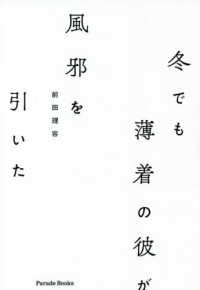 冬でも
薄着の彼が
風邪を
引いた
前田理容
Parade Books